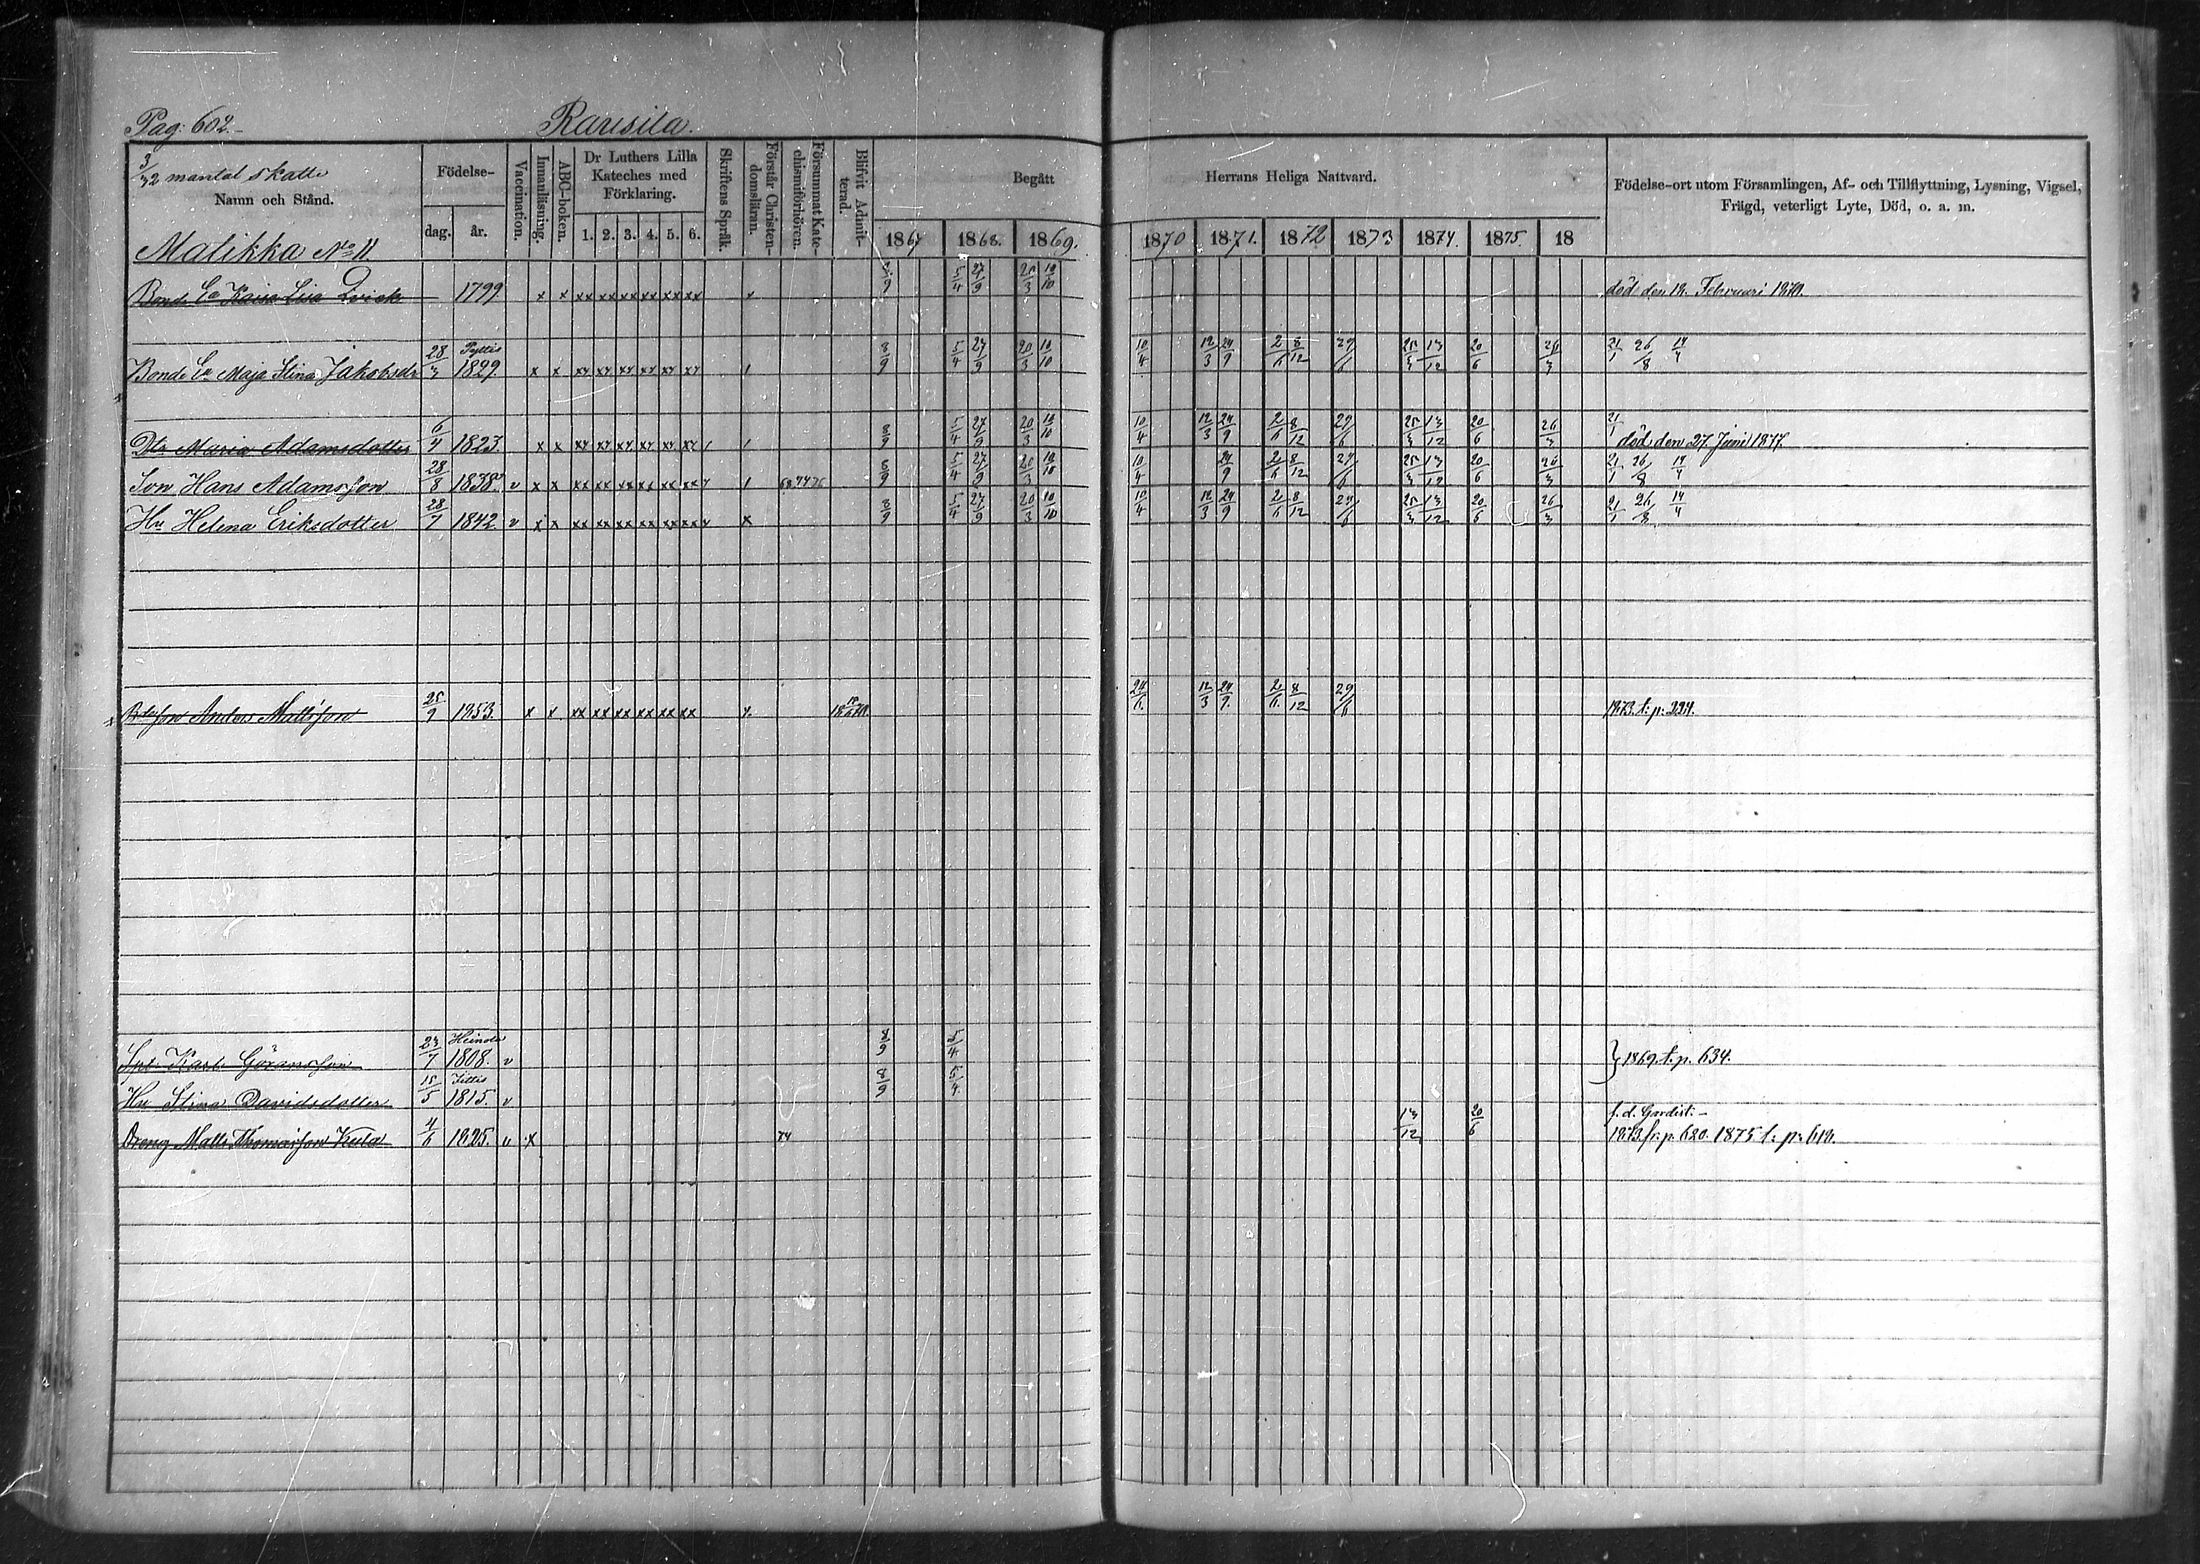 Pag. 602.
Rausila.
3/32 mantal skatte
Namn och Stånd.
Födelse-
dag. år.
Vaccination.
Innanläsning.
ABC-boken.
Dr Luthers Lilla
Kateches med
Förklaring.
1. 2. 3. 4. 5. 6.
Skriftens Språk.
Förstår Christen-
domsläran.
Försummat Kate-
chismiförhören.
Blifvit Admit-
terad.
Begått Herrans Heliga Nattvard.
1867 1868. 1869. 1870 1871. 1872 1873 1874. 1875. 18
Födelse-ort utom Församlingen, Af- och Tillflyttning, Lysning, Vigsel,
Frägd, veterligt Lyte, Död, o. a. m.
Malikka No 11
Bonde Ea Kaisa Lisa 1799. x x xx xx xx xx xx xx x 5/4 27/9 20/3 10/10 död den 12. Februari 1870.
Pyttis
Bonde Ea Maja Stina Jakobsdr 28/3 1829. x x xx xx xx xx xx xx 1 8/9 5/4 27/9 20/3 10/10 10/4 12/3 24/9 2/6 8/12 29/6 25/3 13/12 20/6 26/3 21/1 26/8 14/4
Dtr Maria Adamsdotter 6/4 1823. x x xx xx xx xx xx xx 1 1 8/9 5/4 27/9 20/3 10/10 10/4 12/3 24/9 2/6 8/12 29/6 25/3 13/12 20/6 26/3 21/1 död den 27. Juni 1877.
Son Hans Adamsson 28/8 1838. v x x xx xx xx xx xx xx 1 8/9 5/4 27/9 20/3 10/10 10/4 24/9 2/6 8/12 29/6 25/3 13/12 20/6 26/3 21/1 26/8 14/4
Hu Helena Eriksdotter 28/7 1842 v x x xx xx xx xx xx xx x 8/9 5/4 27/9 20/3 10/10 10/4 12/3 24/9 2/6 8/12 29/6 25/3 13/12 20/6 26/3 21/1 26/8 14/4
Anders Mattsson 25/9 1853. x x xx xx xx xx xx xx x. 24/6. 12/3 24/9. 2/6. 8/12 29/6 1873. t. p. 334.
Heinola
Karl Göransson 23/7 1808. v 8/9 5/4 } 1869. t. p. 634.
Hu Stina Davidsdotter 15/5 1815. v 8/9 5/4
f. d. Gardist. –
Dreng Matts Thomasson Kula 4/6 1825. v x 74 13/12 20/6 1873 fr. p. 620. 1875 t. p. 618.